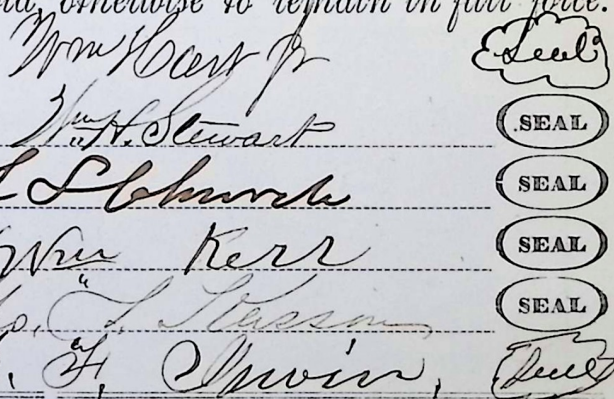 otherwise to remain in full force.
Wm Hart Jr Seal
Wm H. Stewart SEAL
L S Church SEAL
Wm Kerr SEAL
SEAL
F. Irwin, Seal